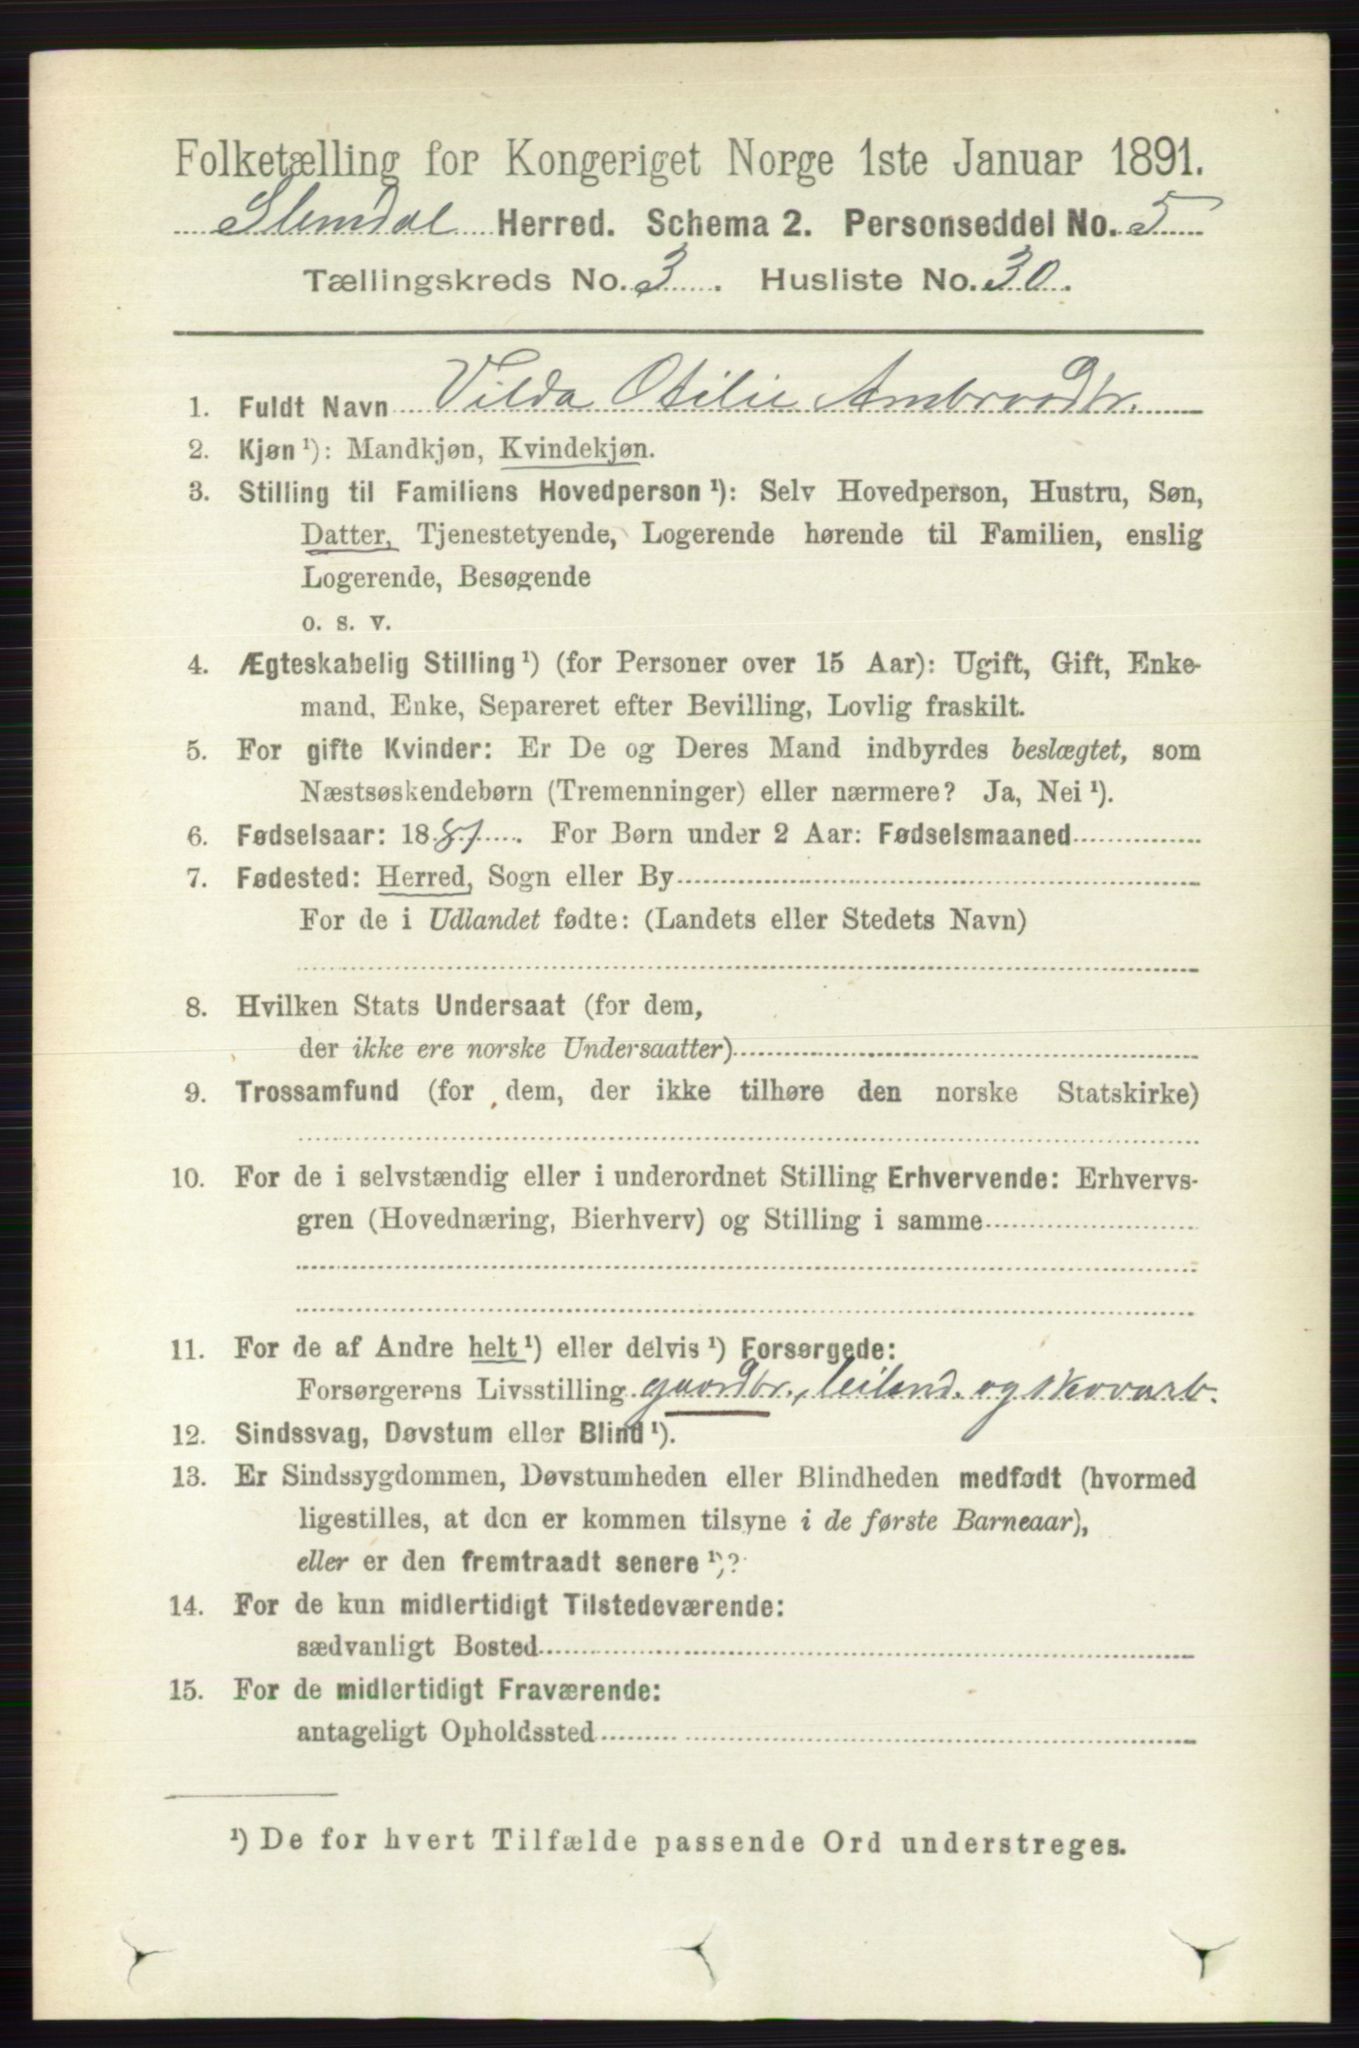 Folketælling for Kongeriget Norge 1ste Januar 1891.
Slemdal Herred. Schema 2. Personseddel No. 5
Tællingskreds No. 3. Husliste No. 30.
1. Fuldt Navn Vilda Otilie Ambroodtr.
2. Kjøn ¹): Mandkjøn, Kvindekjøn.
3. Stilling til Familiens Hovedperson ¹): Selv Hovedperson, Hustru, Søn,
Datter, Tjenestetyende, Logerende hørende til Familien, enslig
Logerende, Besøgende
o. s. v.
4. Ægteskabelig Stilling ¹) (for Personer over 15 Aar): Ugift, Gift, Enke-
mand, Enke, Separeret efter Bevilling, Lovlig fraskilt.
5. For gifte Kvinder: Er De og Deres Mand indbyrdes beslægtet, som
Næstsøskendebørn (Tremenninger) eller nærmere? Ja, Nei ¹).
6. Fødselsaar: 1881. For Børn under 2 Aar: Fødselsmaaned
7. Fødested: Herred, Sogn eller By
For de i Udlandet fødte: (Landets eller Stedets Navn)
8. Hvilken Stats Undersaat (for dem,
der ikke ere norske Undersaatter)
9. Trossamfund (for dem, der ikke tilhøre den norske Statskirke)
10. For de i selvstændig eller i underordnet Stilling Erhvervende: Erhvervs-
gren (Hovednæring, Bierhverv) og Stilling i samme
11. For de af Andre helt ¹) eller delvis ¹) Forsørgede:
Forsørgerens Livsstilling gaardbr., leilend. og skovarb.
12. Sindssvag, Døvstum eller Blind ¹).
13. Er Sindssygdommen, Døvstumheden eller Blindheden medfødt (hvormed
ligestilles, at den er kommen tilsyne i de første Barneaar),
eller er den fremtraadt senere ¹)?
14. For de kun midlertidigt Tilstedeværende:
sædvanligt Bosted
15. For de midlertidigt Fraværende:
antageligt Opholdssted
¹) De for hvert Tilfælde passende Ord understreges.